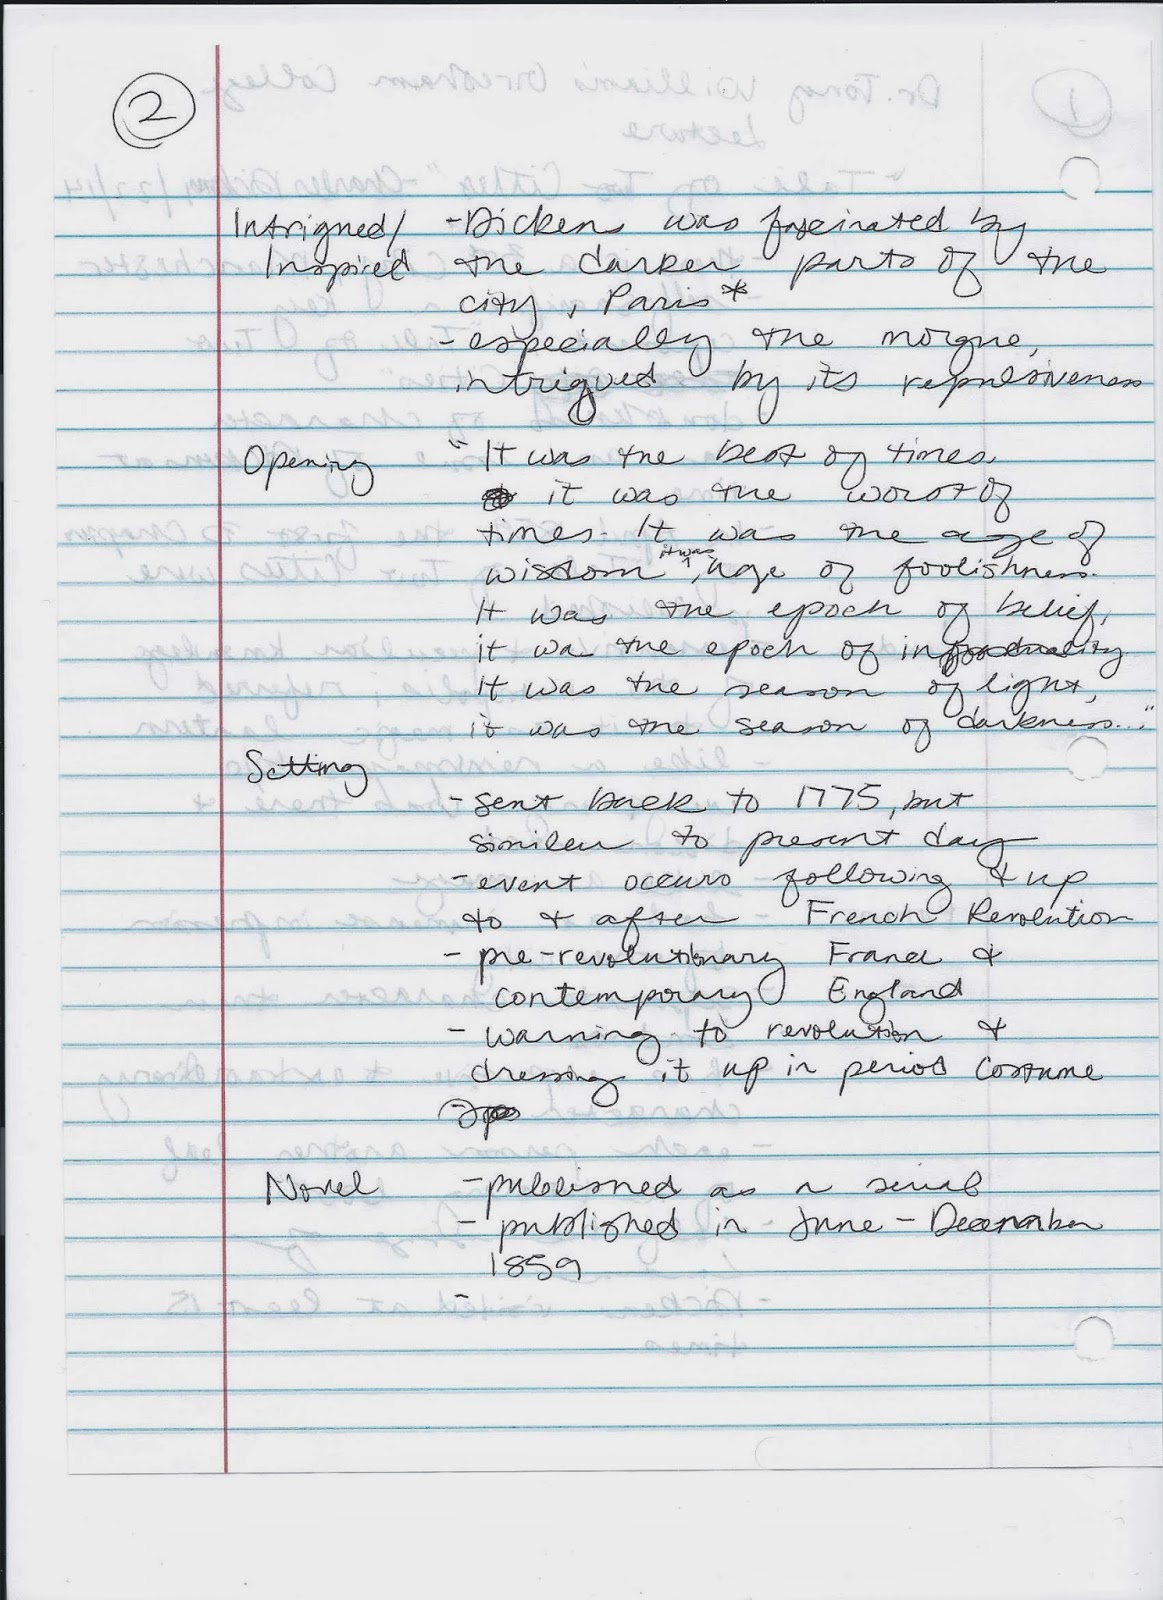 2
Intrigued/ - Dickens was fascinated by
Inspired the darker parts of the
city, Paris*
- especially the morgue,
intrigued by its repulsiveness
Opening "It was the best of times
it was the worst of
times. It was the age of
wisdom, it was age of foolishness.
It was the epoch of belief,
it wa the epoch of
It was the season of light,
it was the season of darkness..."
Setting
- sent back to 1775, but
similar to present day
- event occurs following & up
to & after French Revolution
- pre-revolutionary France &
contemporary England
- warning to revolution &
dressing it up in period costume
Novel - published as a serial
- published in - June - December
1859